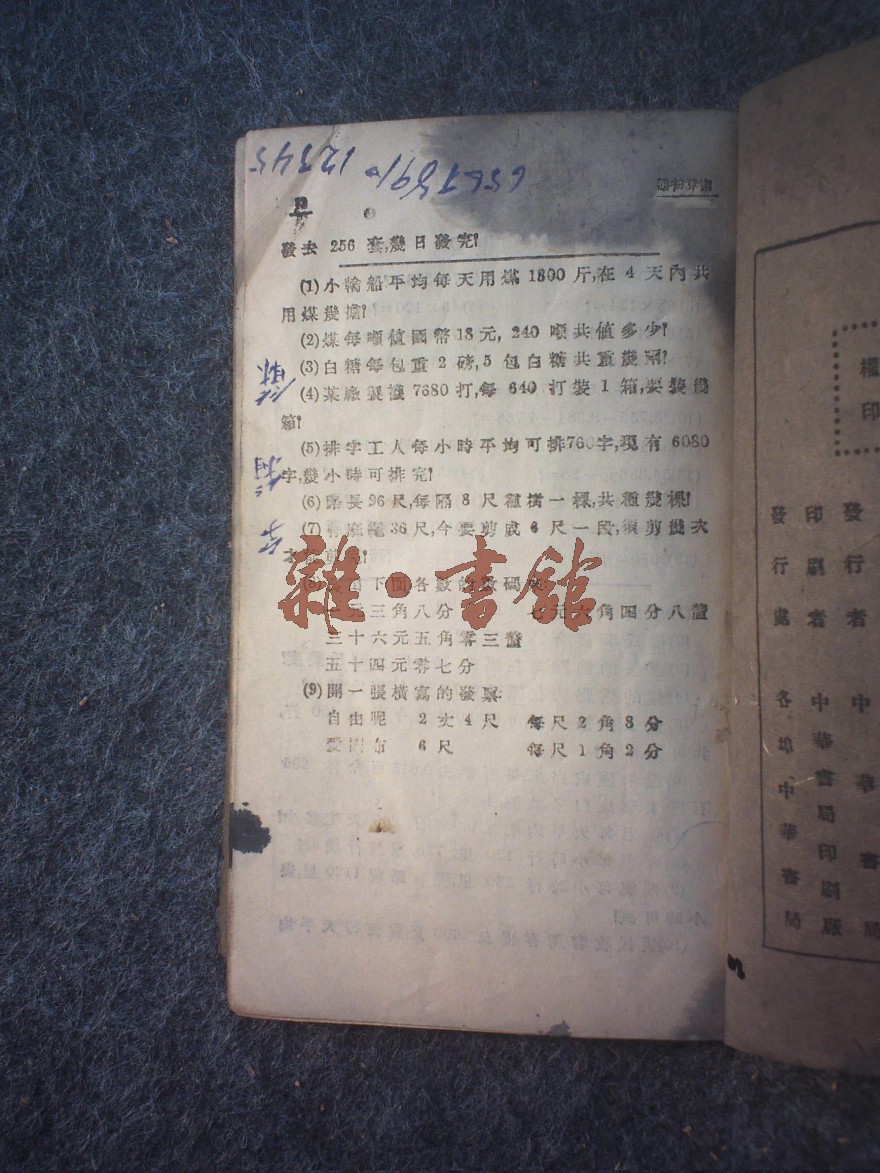 12345
通習算術
發去 256 套,幾日發完?
(1)小輪船平均每天用煤 1800 斤,在 4 天內共
用煤幾擔?
(2)煤每噸值國幣18元, 240 噸共值多少?
(3)白糖每包重 2 磅,5 包白糖共重幾兩?
(4)某廠製襪 7680 打,每 640 打裝 1 箱,要裝幾
箱?
(5)排字工人每小時平均可排760字,現有 6080
字,幾小時可排完?
(6)路長96尺,每隔 8 尺種樹一棵,共種幾棵?
(7)有麻繩36尺,今要剪成 6 尺一段,須剪幾次
下面各數的數碼
元三角八分 七元六角四分八釐
三十六元五角零三釐
五十四元零七分
(9)開一張橫寫的發票:
自由呢 2丈4尺 每尺2角3分
愛國布 6尺 每尺1角2分
雜·書館
權
印
發行者 中華書局
印刷者 中華書局印刷廠
發行處 各埠中華書局